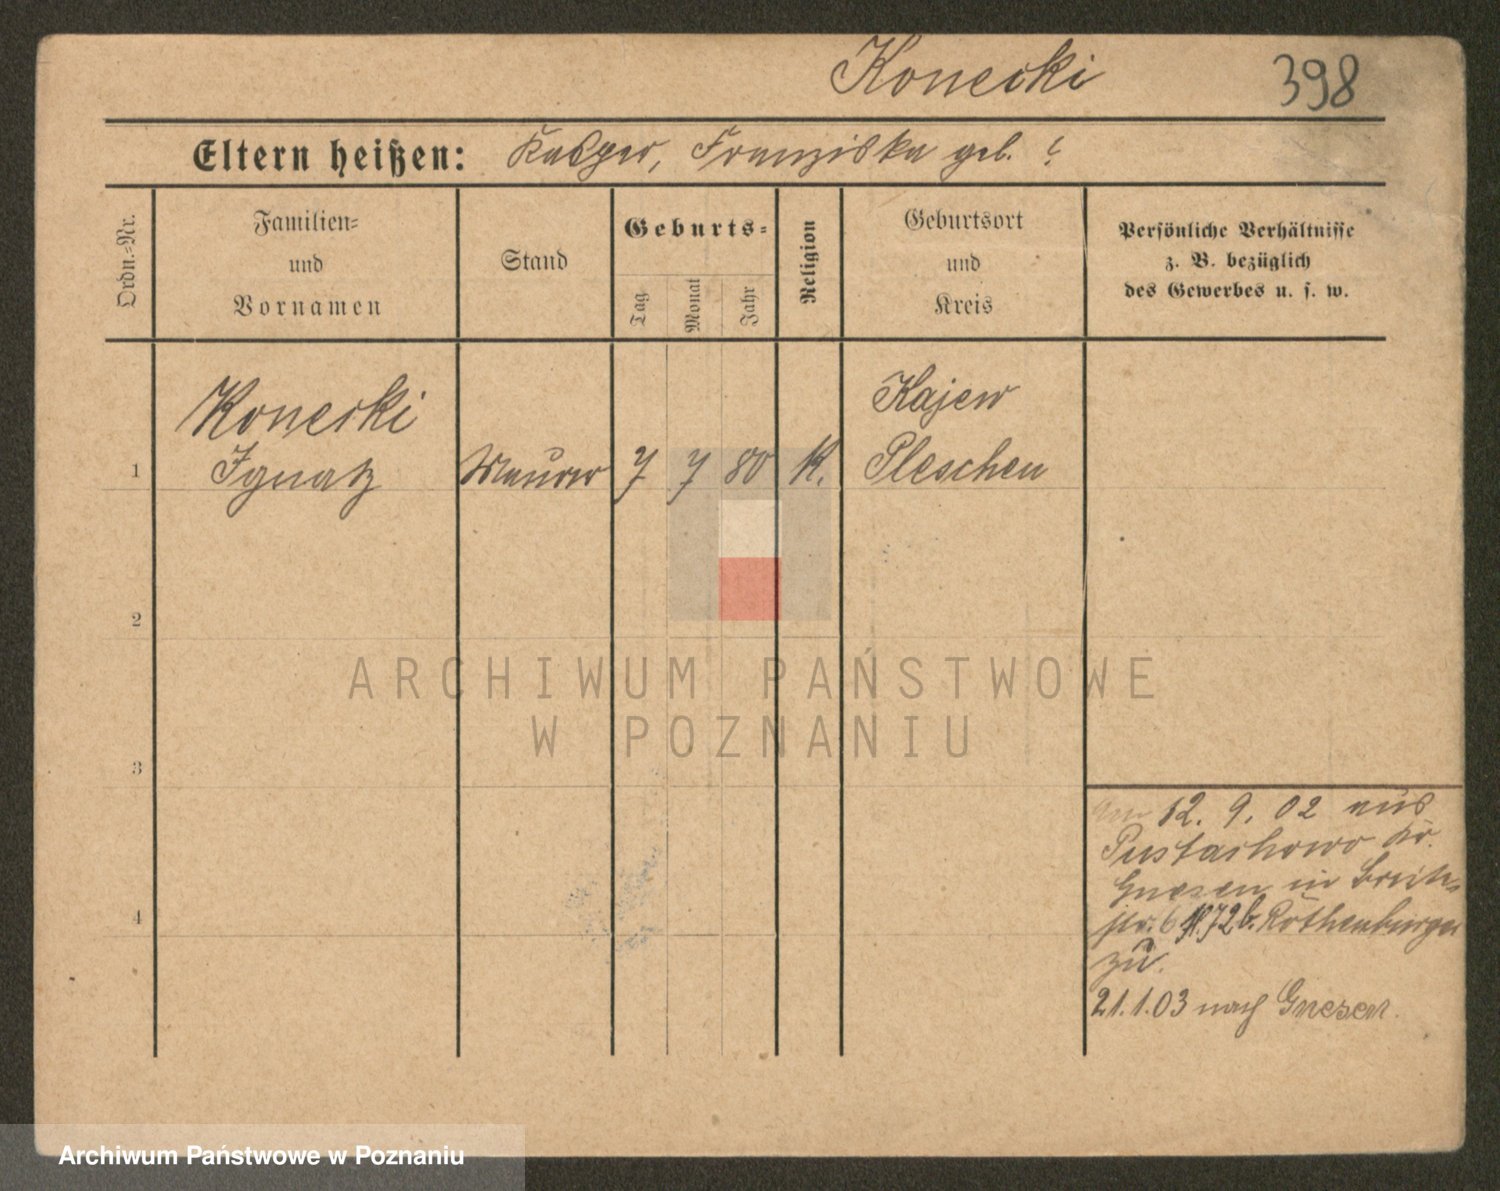 Konecki 398
Eltern heißen: Kasper, Franziska geb. ?
Ordn.=Nr.
Familien=
und
Vornamen
Stand
Geburts=
Tag
Monat
Jahr
Religion
Geburtsort
und
Kreis
Persönliche Verhältnisse
z. B. bezüglich
des Gewerbes u. s. w.
Konecki
Kajew
1 Ignatz Maurer 7 7 80 K. Pleschen
2
3
4
12. 9. 02 aus
Pustachowo Kr.
Gnesen in
str. 6 72b. Rothenburger
zu.
21.1.03 nach Gnesen.
ARCHIWUM PAŃSTWOWE
W POZNANIU
Archiwum Państwowe w Poznaniu